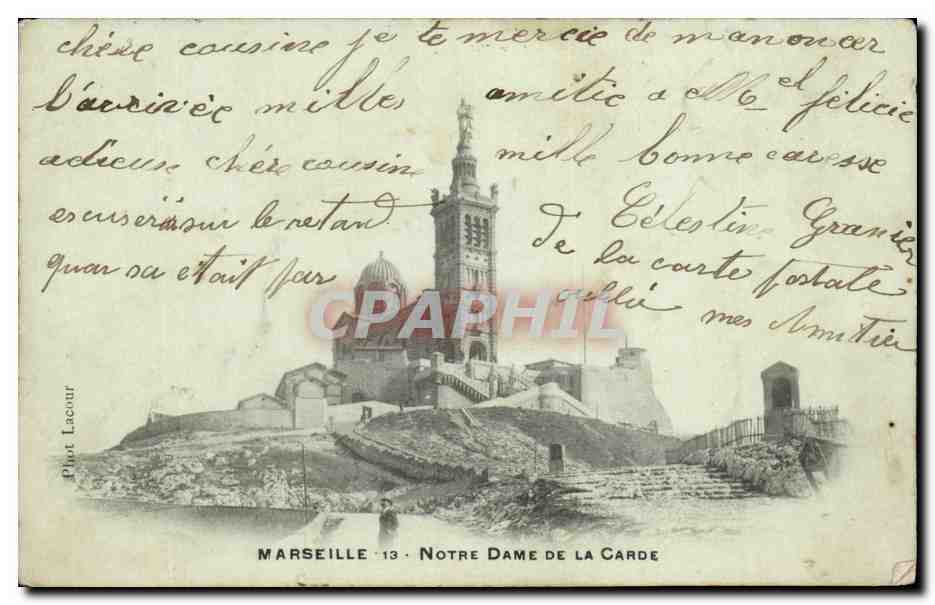 chère cousine je te mercie de m anoncer
l'arrivée milles amitie a Mel félicie
adieus chère cousine mille bonne caresse
escuserà sur le retard de Célestine Granier
quar sa etait par oublié de la carte postale
mes Amitier
CPAPHIL
Phot Lacour
MARSEILLE 13 - NOTRE DAME DE LA GARDE